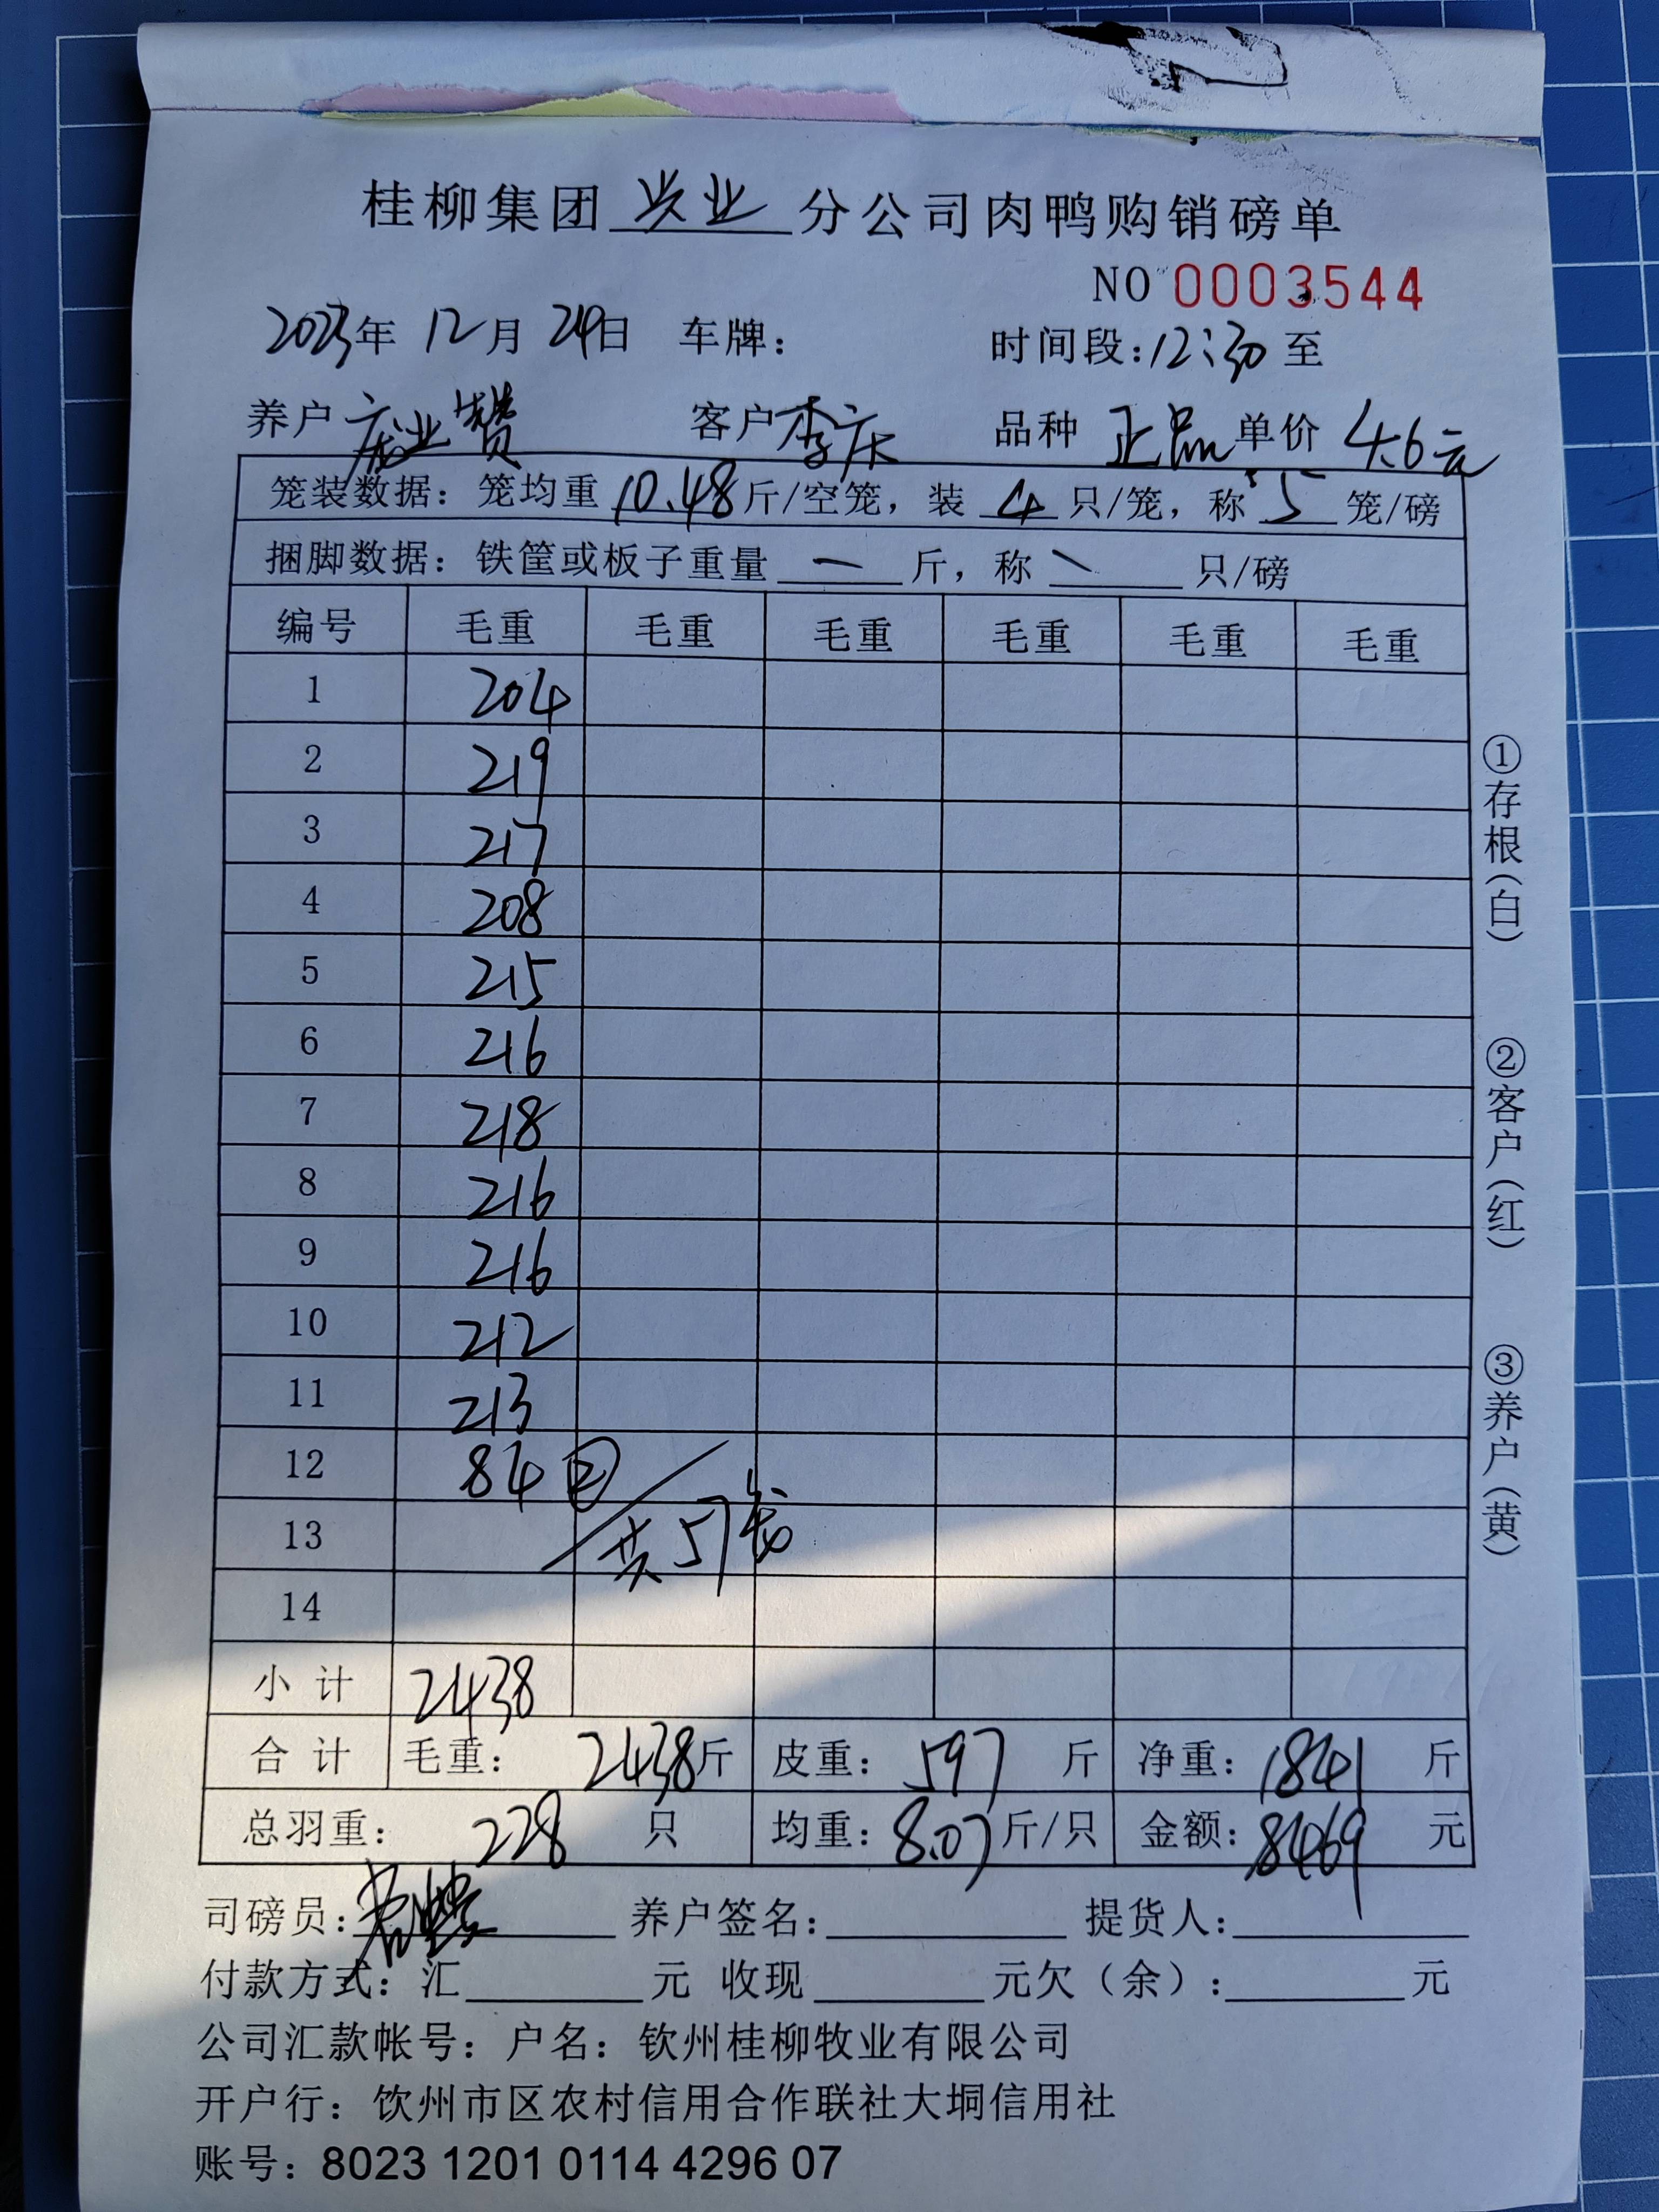 桂柳集团兴业分公司肉鸭购销磅单
NO 0003544
2023年 12月 24日 车牌： 时间段：12:30 至
养户 庞业赞 客户 李庆 品种 正品 单价 4.6元
笼装数据：笼均重 10.48 斤/空笼，装 4 只/笼，称 5 笼/磅
捆脚数据：铁筐或板子重量 — 斤，称 \ 只/磅
编号 毛重 毛重 毛重 毛重 毛重 毛重
1 204
2 219
3 217
4 208
5 215
6 216
7 218
8 216
9 216
10 212
11 213
12 84 ②
13 共57笼
14
小计 2438
合计 毛重： 2438斤 皮重： 597 斤 净重： 1841 斤
总羽重： 228 只 均重： 8.07斤/只 金额： 8469 元
司磅员： 养户签名： 提货人：
付款方式：汇 元 收现 元欠（余）： 元
公司汇款帐号：户名：钦州桂柳牧业有限公司
开户行：饮州市区农村信用合作联社大垌信用社
账号：8023 1201 0114 4296 07
①存根（白）
②客户（红）
③养户（黄）